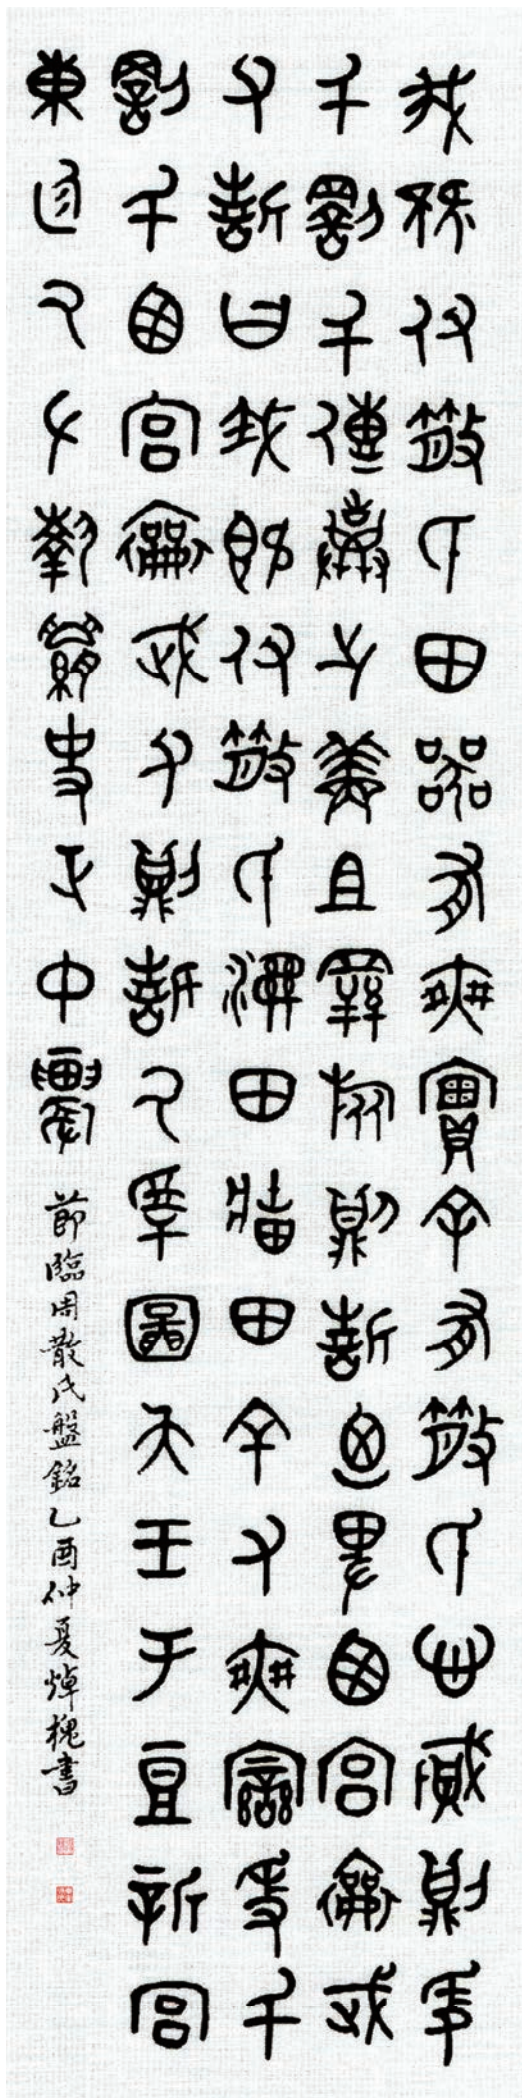 我既付散氏田器有爽實余有散氏心賊則爰
千罰千傳棄之鮮且𢍰旅則誓廼卑西宮襄武
父誓曰我既付散氏濕田牆田余又爽變爰千
罰千西宮襄武父則誓厥受圖夨王于豆新宮
東廷厥左執䋣史正中農
節臨周散氏盤銘乙酉仲夏焯槐書